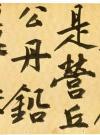 是營丘
公丹鉛